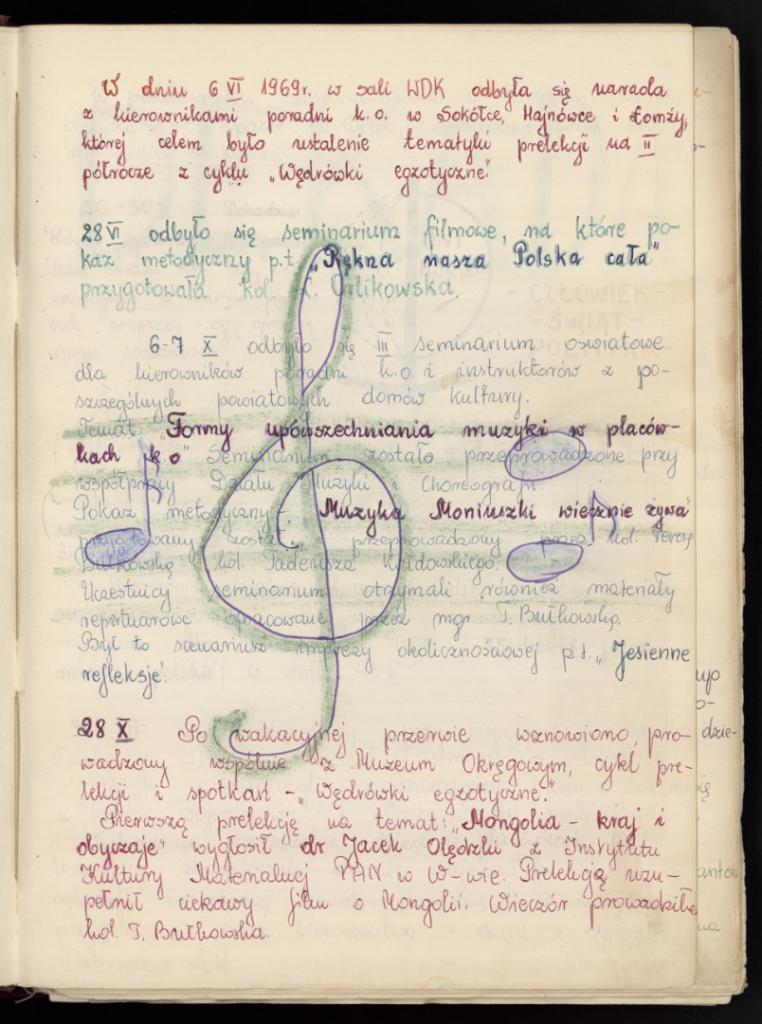 W dniu 6 VI 1969r. w sali WDK odbyła się narada
z kierownikami poradni k.o. w Sokółce, Hajnówce i Łomży,
której celem było ustalenie tematyki prelekcji na II
półrocze z cyklu „Wędrówki egzotyczne".
28 VI odbyło się seminarium filmowe, na które po-
kaz metodyczny p.t. „Piękna nasza Polska cała"
przygotowała kol. Ł. Calikowska.
6-7 X odbyło się III seminarium oświatowe
dla kierowników poradni k.o i instruktorów z po-
szczególnych powiatowych domów kultury.
Temat „Formy upowszechniania muzyki w placów-
kach k.o" Seminarium zostało przeprowadzone przy
współpracy Działu Muzyki i Choreografii.
Pokaz metodyczny t. Muzyka Moniuszki wiecznie żywa"
przygotowany został i przeprowadzony przez kol. Teresę
Butkowską i kol. Tadeusza
Uczestnicy seminarium otrzymali również materiały
repertuarowe opracowane przez mgr T. Butkowską.
Był to scenariusz imprezy okolicznościowej p.t. „Jesienne
refleksje".
28 X Po wakacyjnej przerwie wznowiono, pro-
wadzony wspólnie z Muzeum Okręgowym, cykl pre-
lekcji i spotkań - „Wędrówki egzotyczne."
Pierwszą prelekcję na temat: „Mongolia - kraj i
obyczaje" wygłosił dr Jacek Olędzki z Instytutu
Kultury Materialnej PAN w W-wie. Prelekcję uzu-
pełnił ciekawy film o Mongolii. Wieczór prowadziła
kol. T. Butkowska.